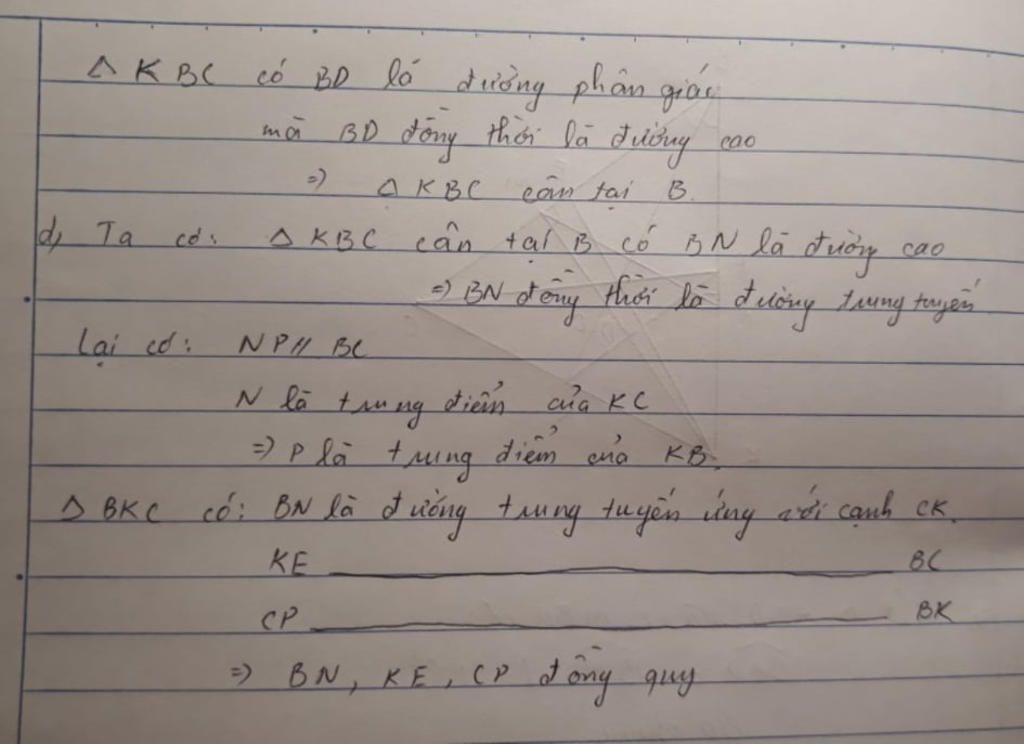 Δ KBC có BD là đường phân giác
mà BD đồng thời là đường cao
=> Δ KBC cân tại B.
d, Ta có: Δ KBC cân tại B có BN là đường cao
=> BN đồng thời là đường trung tuyến
Lại có: NP // BC
N là trung điểm của KC
=> P là trung điểm của KB.
Δ BKC có: BN là đường trung tuyến ứng với cạnh CK.
KE ——— BC
CP ——— BK
=> BN, KE, CP đồng quy